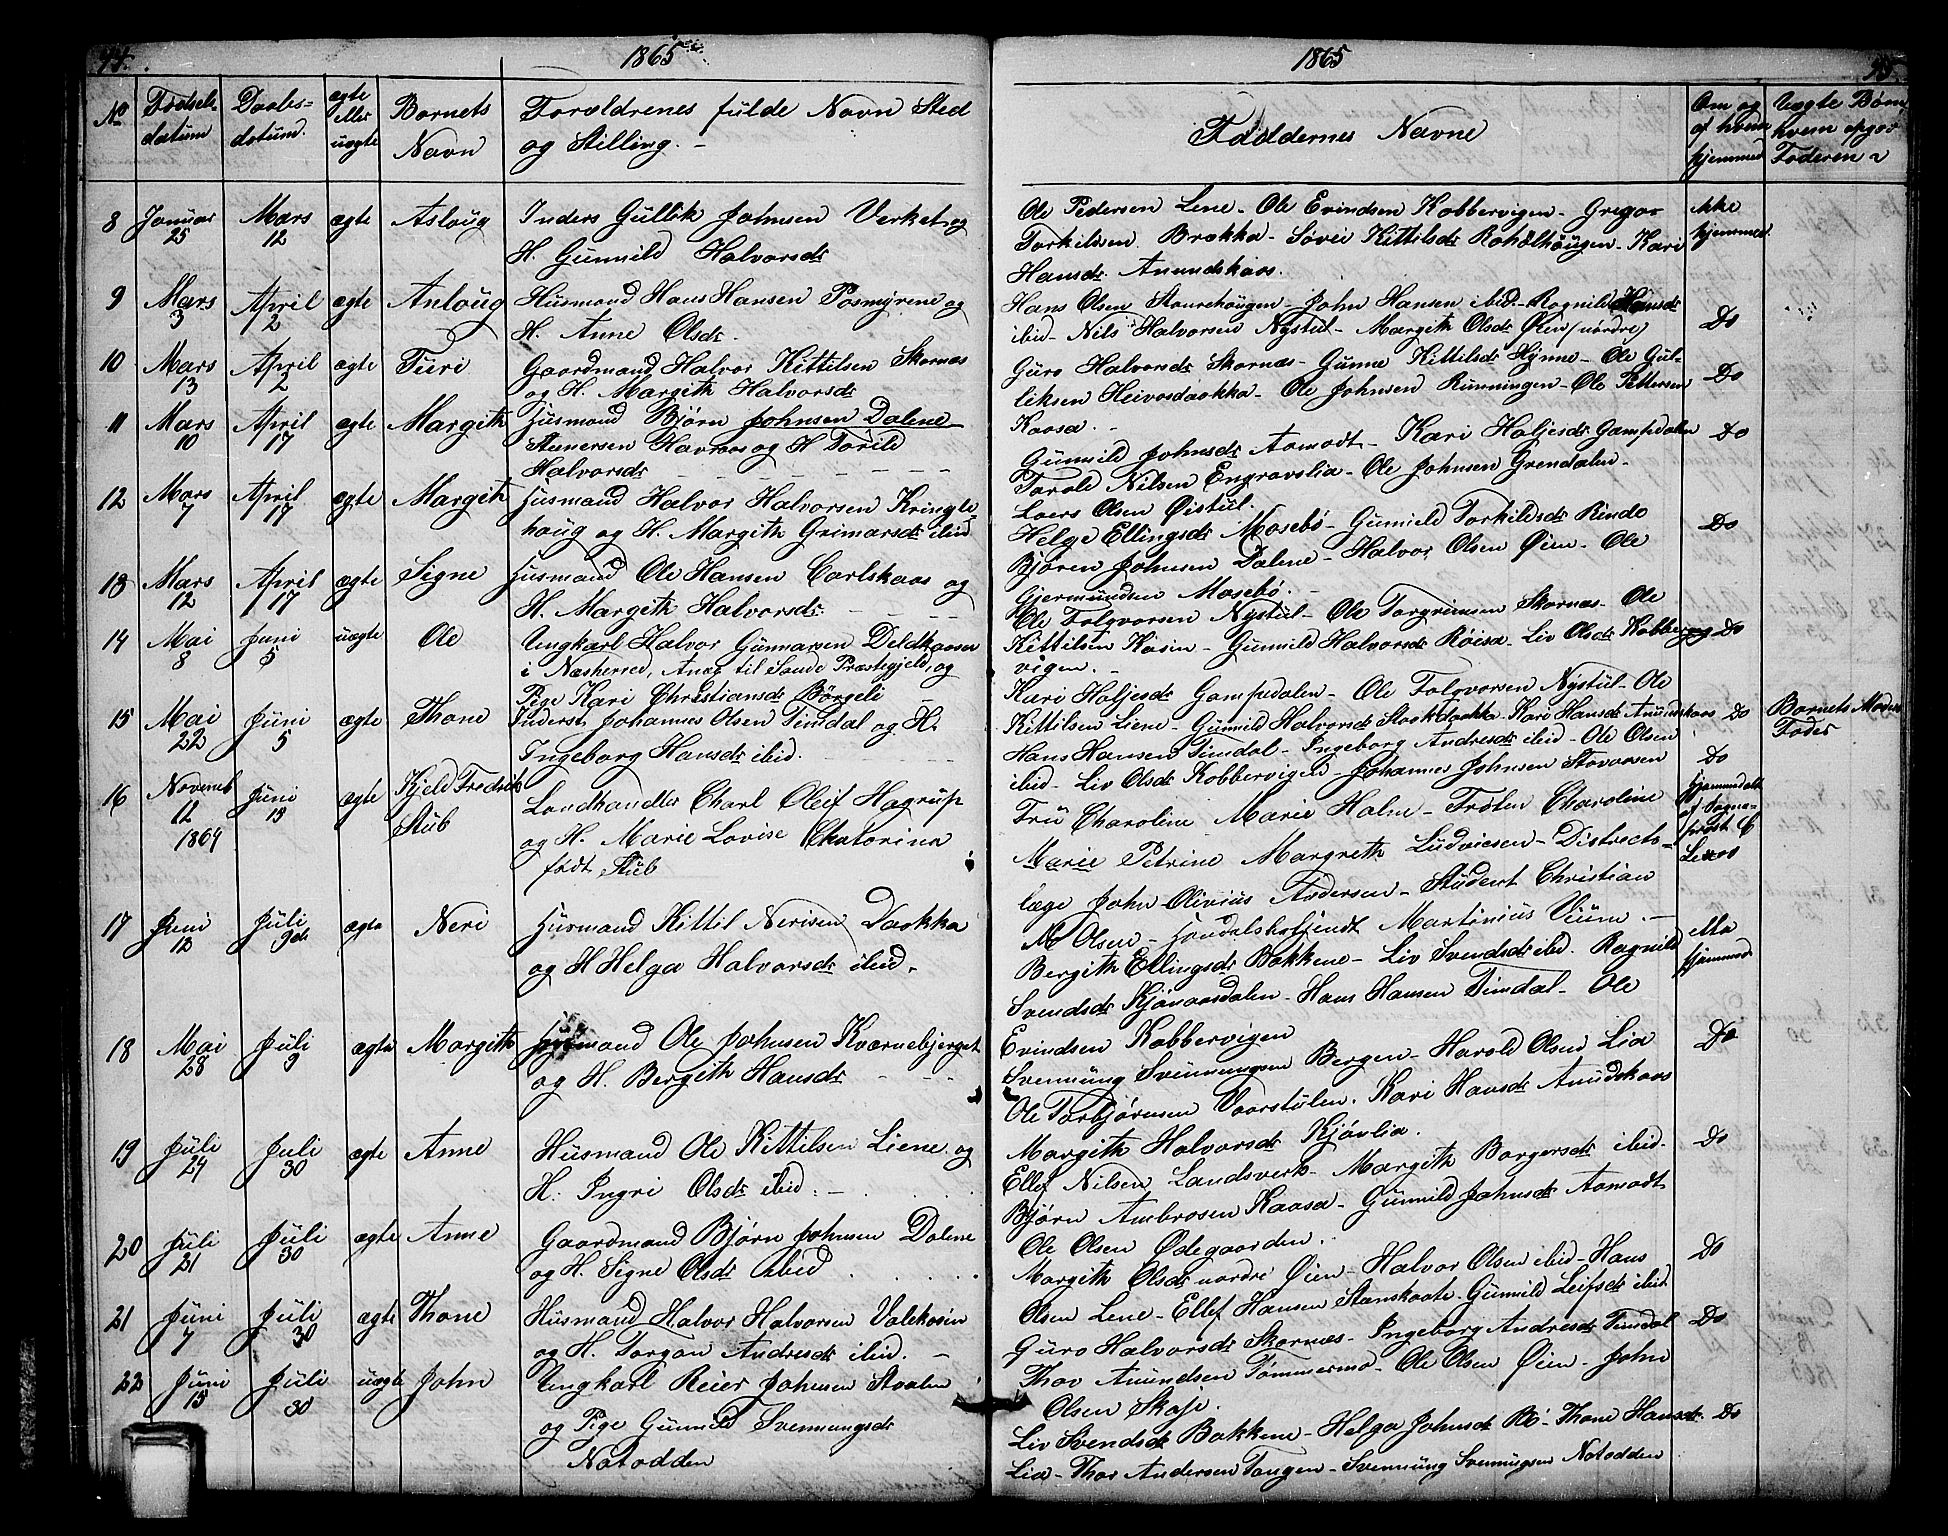 1865
1865
No
Fødsels-
datum
Daabs-
datum.
ægte
eller
uægte
Barnets
Navn
Forældrenes fulde Navn Sted
og Stilling. -
Faddernes Navne
Om og
af hvem
hjemmed
Uægte Børn
hvem opgiv
Faderen
8 Januar 25 Mars 12 ægte Aslaug Inders Gullik Johnsen Verket og
H. Gunnild Halvorsdr
Ole Pedersen Lene - Ole Evindsen Kobbervigen - Gregar
Torkilsen Brækka - Søvei Kittilsdr - Kari
Hansdr. Anundskaas.
ikke
hjemmed
9 Mars 3 April 2 ægte Anlaug Husmand Hans Hansen Posmyrene og
H. Anne Olsdr.
Hans Olsen Staurehaugen - John Hansen ibid - Ragnild Hansdr
ibid - Nils Halvorsen Nystul - Margith Olsdr Øien (nordre)
Do
10 Mars 13 April 2 ægte Turi Gaardmand Halvor Kittilsen Skornæs
og H. Margith Halvorsdr
Guro Halvorsdr Skornæs - Gunne Kittilsdr Hynne - Ole Gul-
liksen Heivosdaakka - Ole Johnsen Runningen - Ole Pettersen
Kaasa. -
Do
11 Mars 10 April 17 ægte Margith Husmand Bjørn Johnsen Dalene
Stenersen Havraas og H Torild
Halvorsdr
Gunnild Johnsdr Aamodt - Kari Haljesdr Gampedalen
Torald Nilsen Engravslia - Ole Johnsen Grendalen -
Laers Olsen Øistul.
Do
12 Mars 7 April 17 ægte Margith Husmand Halvor Halvorsen Kringle-
haug og H. Margith Grimarsdr ibid
Helge Ellingsdr Mosebø - Gunnild Torkildsdr Rinde
Bjøren Johnsen Dalene - Halvor Olsen Øien - Ole
Gjermundsen Mosebø. -
Do
13 Mars 12 April 17 ægte Signe Husmand Ole Hansen Carlskaas og
H. Margith Halvorsdr
Ole Folqvorsen Nystul - Ole Torgrimsen Skornæs - Ole
Kittilsen Hasin - Gunnild Halvorsdr Røisa - Liv Olsdr Kobber
vigen. -
Do
14 Mai 8 Juni 5 uægte Ole Ungkarl Halvor Gunnarsen Deldkaasen
i Næsherred, Anex til Sande Præstegjeld, og
Pige Kari Christiansdr Børgeli
Kari Haljesdr Gampedalen - Ole Folqvorsen Nystul - Ole
Kittilsen Liene - Gunnild Halvorsdr Staakdaakka - Kari Hansdr Anundskaas
Do
Barnets Moders
Fader
15 Mai 22 Juni 5 ægte Thone Inderst Johannes Olsen Timdal og H.
Ingeborg Hansdr ibid.
Hans Hansen Timdal - Ingeborg Andresdr ibid - Ole Olsen
ibid - Liv Olsdr Kobbervigen - Johannes Johnsen Stavaasen
Do
16 Novemb 12 1864 Juni 13 ægte Kjeld Fredrik
Stub
Landhandler Charl Oleif Hagrup
og H. Marie Lovise Chatarina
født Stub
Fru Charoline Marie Holm - Frøken Charoline
Marie Petrine Margreth Ludviesen - Districts-
læge John Olivius Andersen - Student Christian
Olsen - Handelsbetjendt Martinius Vium. -
hjemmedøbt
af Sogne-
prest
17 Juni 13 Juli 9de ægte Neri Husmand Kittil Nerisen Daakka
og H Helga Halvorsdr ibid.
Bergith Ellingsdr Bakkene - Liv Svendsdr ibid. Ragnild
Svendsdr Kjønaasdalen - Hans Hansen Timdal - Ole
Evindsen Kobbervigen
ikke
hjemmed
18 Mai 28 Juli 9 ægte Margith Husmand Ole Johnsen Kværnebjerget
og H. Bergith Hansdr
Svennung Svennungsen Bergen - Harald Olsen Lia
Ole Torbjørnsen Vaarstulen. Kari Hansdr Anudskaas
Margith Halvorsdr Kjøvlia.
Do
19 Juli 24 Juli 30 ægte Anne Husmand Ole Kittilsen Liene og
H. Ingri Olsdr ibid. -
Ellef Nilsen Landsverk - Margith Borgersdr ibid.
Bjørn Ambrosen Kaasa - Gunnild Johnsdr Aamodt
Ole Olsen Ødegaarden.
Do
20 Juli 21 Juli 30 ægte Anne Gaardmand Bjørn Johnsen Dalene
og H. Signe Olsdr ibid
Margith Olsdr nordre Øien - Halvor Olsen ibid - Hans
Olsen Lene - Ellef Hansen Stenskaate - Gunnild Leifsdr ibid
Do
21 Juni 7 Juli 30 ægte Thone Husmand Halvor Halvorsen Valekasin
og H. Torgon Andresdr ibid. -
Guro Halvorsdr Skornæs - Ingeborg Andresdr Timdal
Thov Anundsen Tømmermo - Ole Olsen Øien - John
Olsen Skaje.
Do
22 Juni 13 Juli 30 uægte John Ungkarl Reier Johnsen Staalen
og Pige Gunnild Svennungsdr
Natadden
Liv Svendsdr Bakkene - Helga Johnsdr Bø - Thone Hansdr
Lia - Thor Andersen Tangen - Svennung Svennugsen Natodden
Do